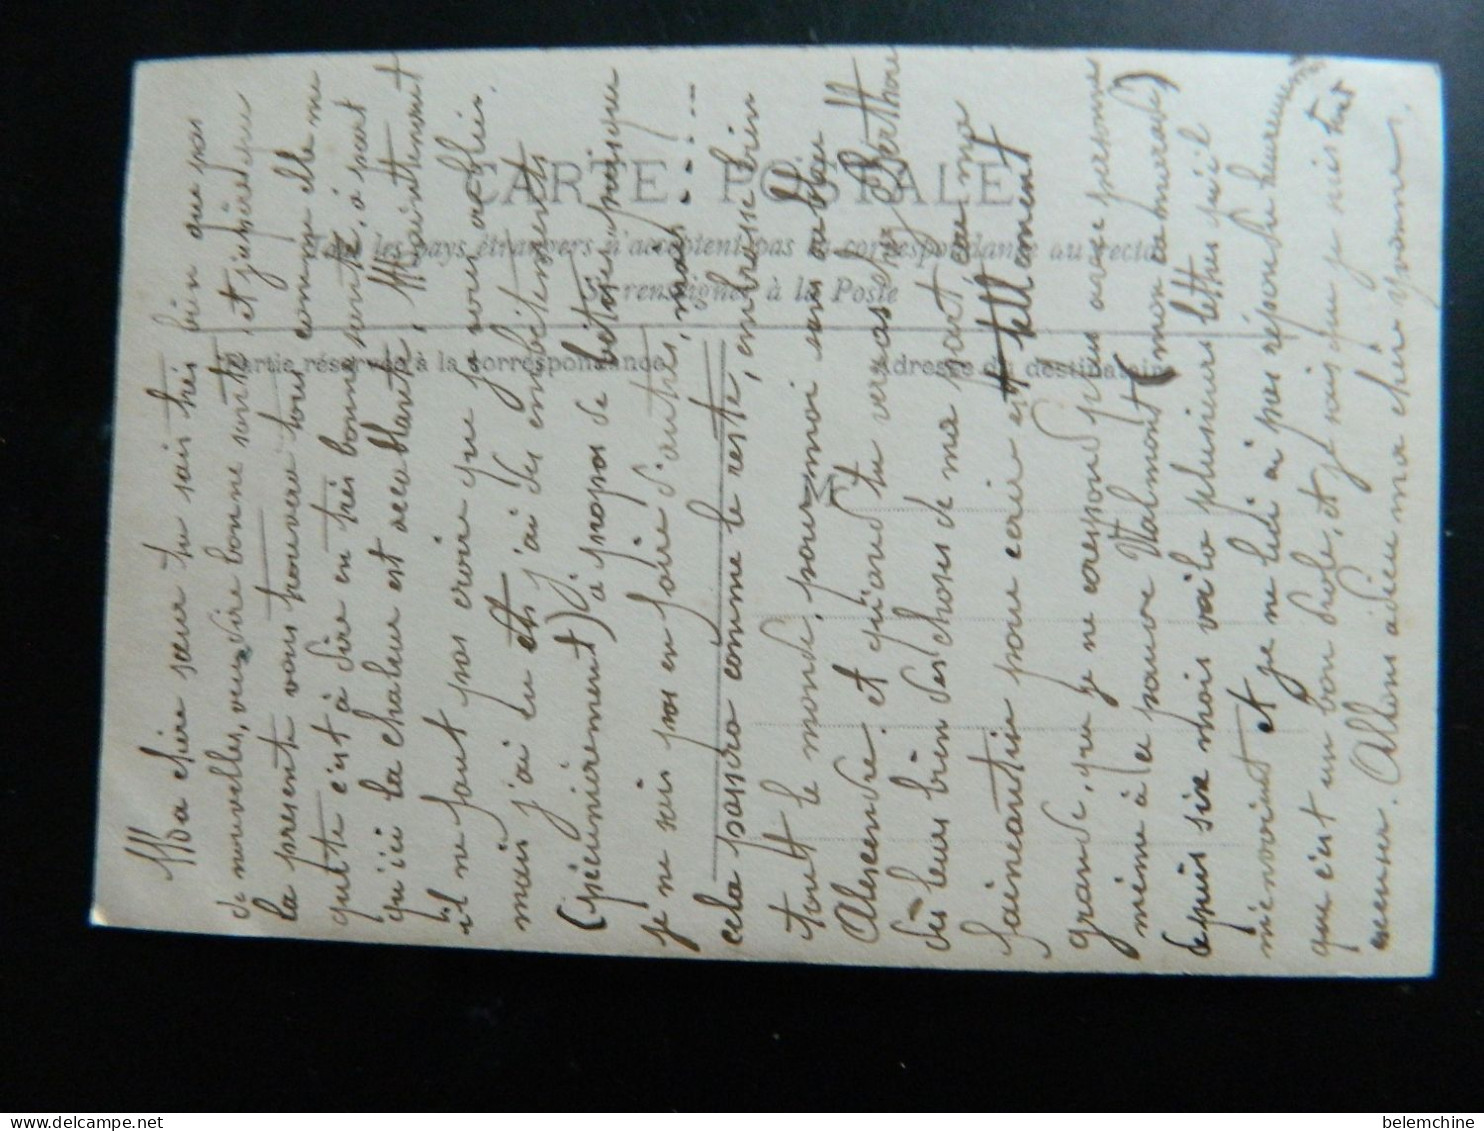 CARTE POSTALE
Tous les pays étrangers n'acceptent pas la correspondance au recto
Se renseigner à la Poste
Partie réservée à la correspondance
Adresse du destinataire
M
Ma chère sœur tu sais très bien que pas
de nouvelles, veux dire bonne santé, et j'espère que
la présente vous trouvera tous comme elle me
quitte c'est à dire en très bonne santé, à part
qu'ici la chaleur est accablante, Maintenant
il ne faut pas croire que je vous oublier.
mais j'ai eu et j'ai des embêtements
(pécunièrement) à propos de bêtises puisque
je ne sais pas en faire d'autres, mais .....
cela passera comme le reste, embrasse bien
tout le monde, pour moi sans oublier
Alexandre. et quand tu verras Berthore
dis leurs bien des choses de ma part car ma
faineantise pour ecrir est tellement
grande, que je ne corespond plus avec personne
même à ce pauvre Valmont (mon camarade)
depuis six mois voilà plusieurs lettres qu'il
m'envoient et je ne lui ai pas répondu heureusement
que c'est un bon diole, et je sais que je suis tout
excuser. Allons adieu ma chèr Yvonne.
belemchine